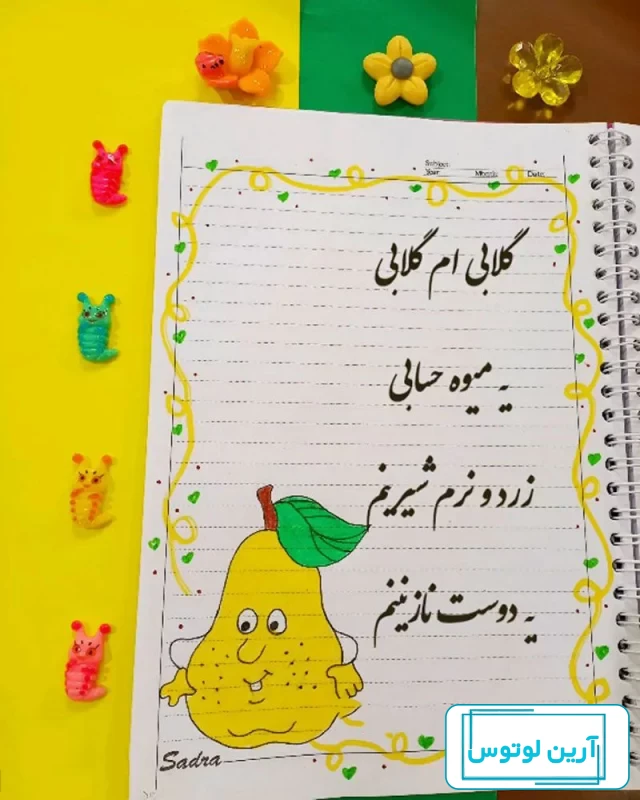 Subject:
Year. Month: Date:
گلابی ام گلابی
یه میوه حسابی
زرد و نرم شیرینم
یه دوست نازنینم
Sadra
آرین لوتوس